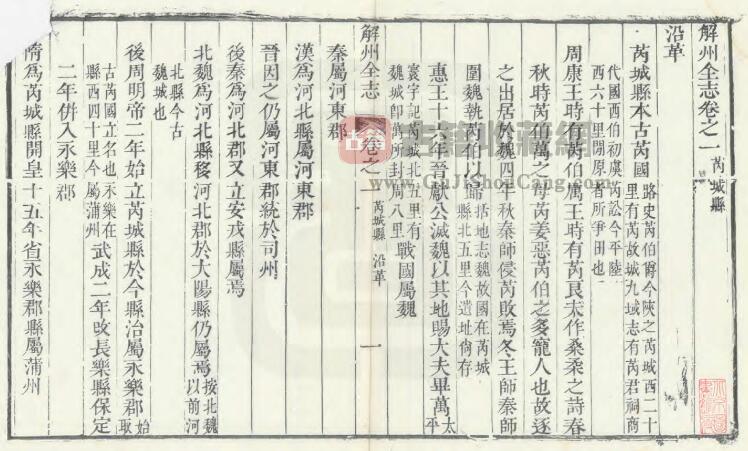 解州全志卷之一芮城縣
沿革
芮城縣本古芮國路史芮伯爵今陜之芮城西二十里有芮故城九域志有芮君祠商
代國西伯初虞芮訟今平陸西六十里閒原者所爭田也
周康王時有芮伯厲王時有芮良夫作桑柔之詩春
秋時芮伯萬之母芮姜惡芮伯之多寵人也故逐
之出居於魏四年秋秦師侵芮敗焉冬王師秦師
圍魏執芮伯以歸括地志魏故國在芮城縣北五里今遺址尚存
惠王十六年晉獻公滅魏以其地賜大夫畢萬太平
寰宇記芮城北五里有魏城卽萬所封周八里戰國屬魏
解州全志 卷之一 芮城縣 沿革 一
秦屬河東郡
漢爲河北縣屬河東郡
晉因之仍屬河東郡統於司州
後秦爲河北郡又立安戎縣屬焉
北魏爲河北縣移河北郡於大陽縣仍屬焉按北魏以前河
北縣今古魏城也
後周明帝二年始立芮城縣於今縣治屬永樂郡始取
古芮國立名也永樂在縣西四十里今屬蒲州武成二年改長樂縣保定
二年併入永樂郡
隋爲芮城縣開皇十五年省永樂郡縣屬蒲州